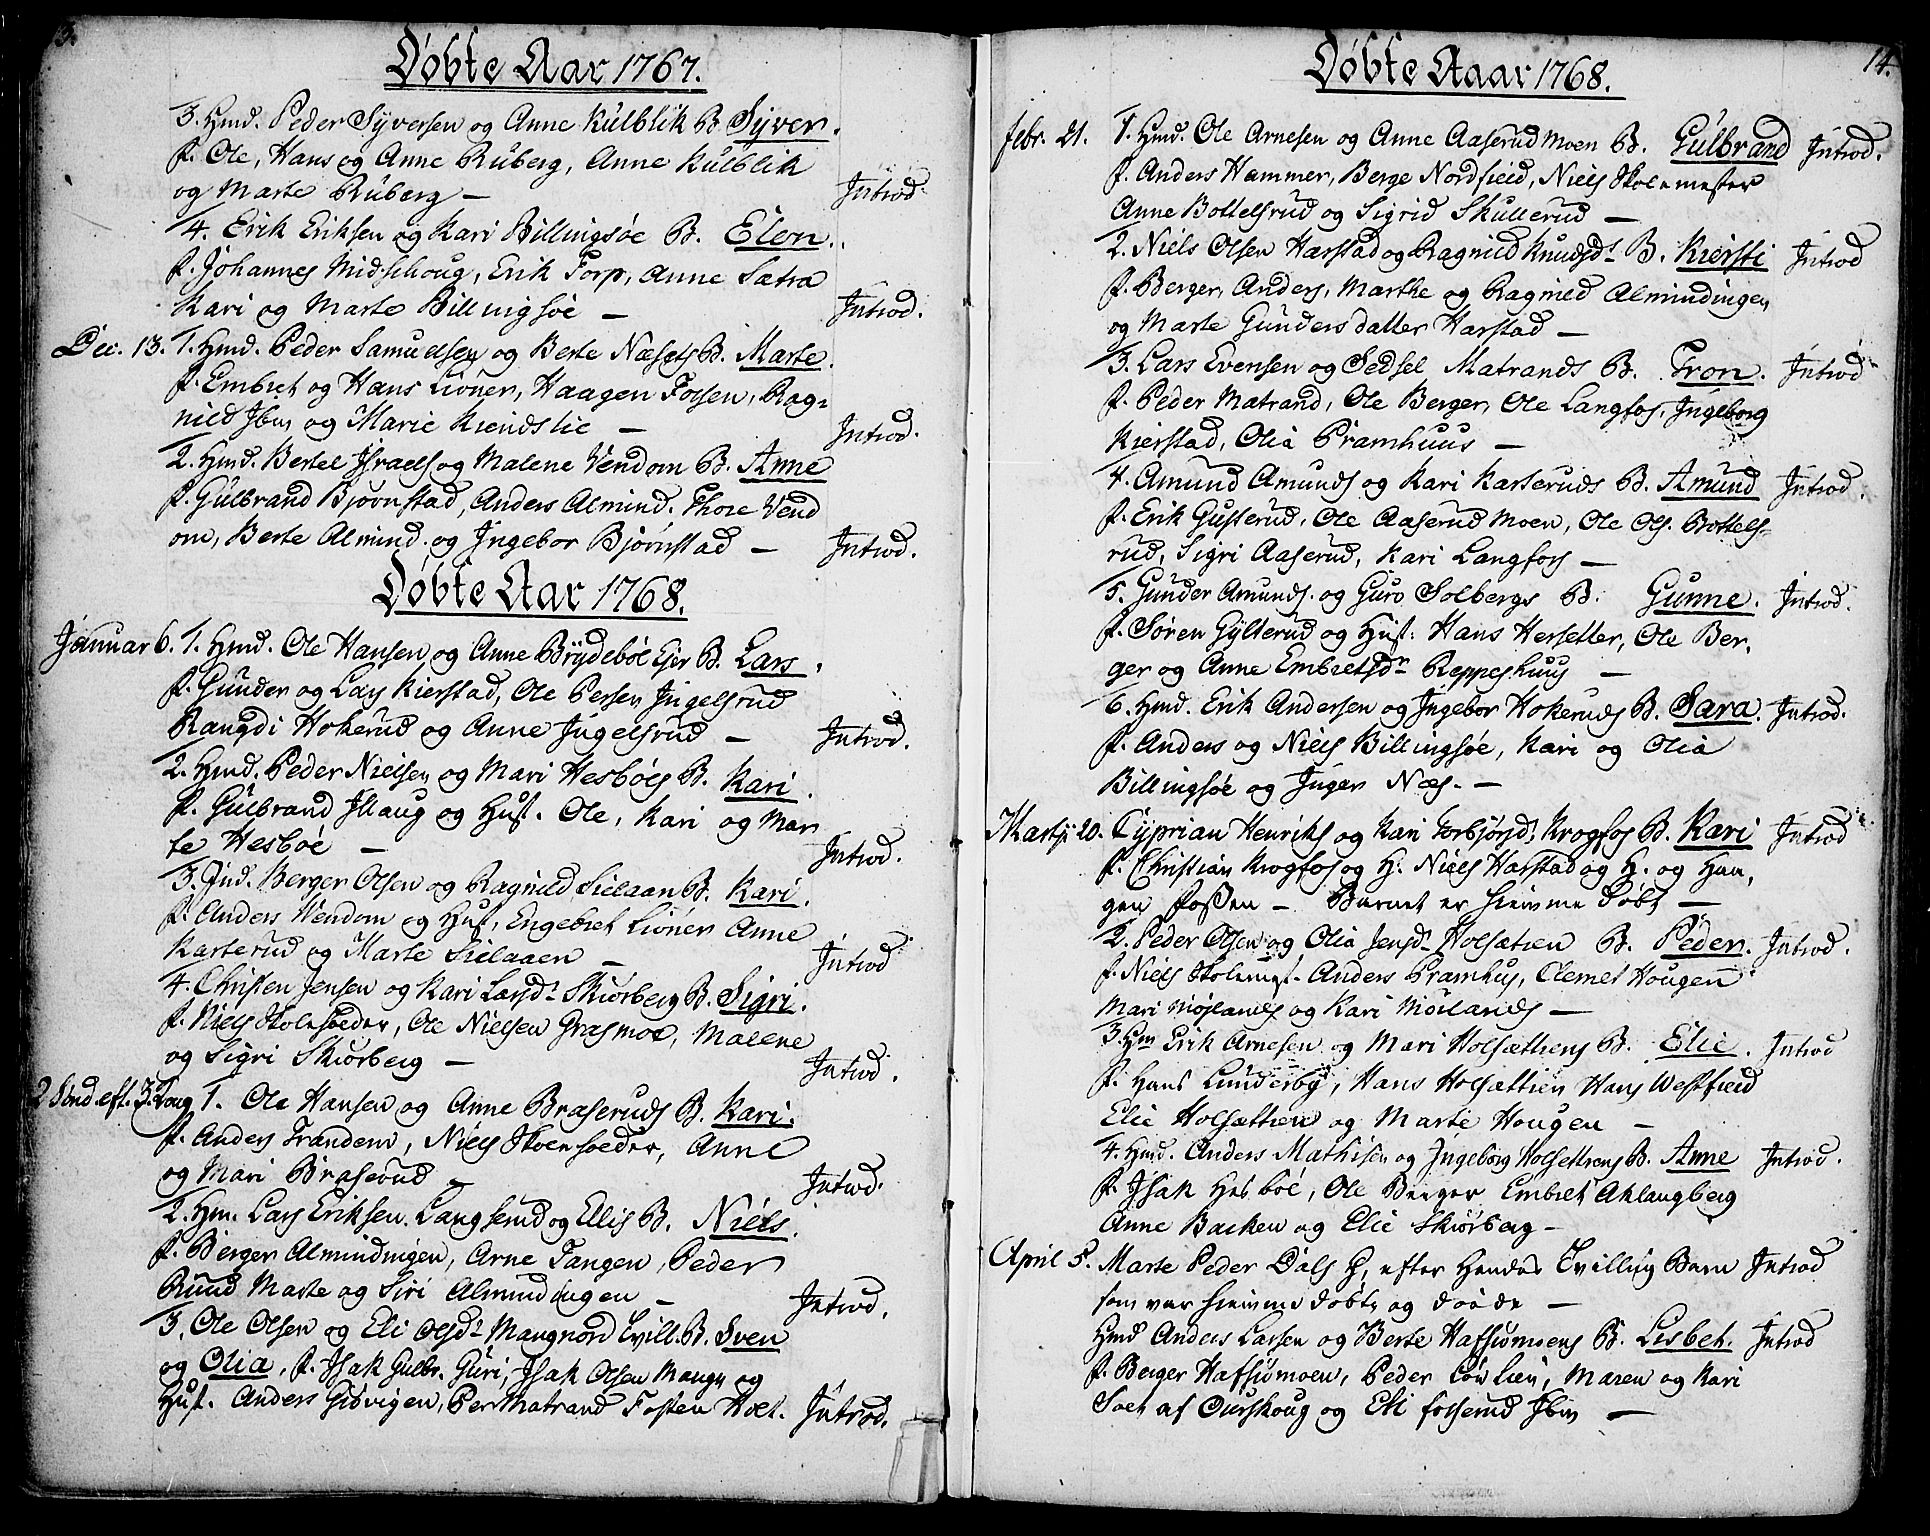 13.
Döbte Aar 1767.
3. Hmd. Peder Syversen og Anne Kulblik B. Syver.
f. Ole, Hans og Anne Ruberg, Anne Kulblik
og Marte Ruberg — Introd.
4. Erik Eriksen og Kari Billingsöe B. Elen.
f. Johannes Midschoug, Erik Torp, Anne Sætra
Kari og Marte Billingsöe — Introd.
Dec. 13. 1. Hmd. Peder Samuelsen og Berte Næsets B. Marte.
f. Embret og Hans Lioner, Haagen Fossen, Rag=
nild Ibm og Marie Kiendslie — Introd.
2. Hmd. Bertel Israels og Malene Vendom B. Anne
f. Gulbrand Bjoornstad, Anders Almind. Thore Vend
om, Berte Almind. og Ingebor Bjornstad — Introd.
Döbte Aar 1768.
Januar 6. 1. Hmd. Ole Hansen og Anne Brydeböl Ejer B. Lars.
f. Gunder og Lars Kierstad, Ole Persen Ingelsrud
Rangdi Hokerud og Anne Ingelsrud — Introd.
2. Hmd. Peder Nielsen og Mari Hesböes B. Kari.
f. Gulbrand Illaug og Hust. Ole, Kari og Mar
te Hesböe — Introd.
3. Ind. Berger Olsen og Ragnild Sielaan B. Kari.
f. Anders Vendom og Hust, Engebret Lioner Anne
Karterud og Marte Sielaaen — Introd
4. Christen Jensen og Kari Larsdr Skiörberg B. Sigri.
f. Niels Skolesöeder, Ole Nielsen Grasmoe, Malene
og Sigri Skiörberg — Introd.
2 Sönd. eft. 3. Kong 1. Ole Hansen og Anne Braseruds B. Kari.
f. Anders Trandem, Niels Skoensoeder, Anne
og Mari Braserud — Introd.
2. Hm. Lars Eriksen Langsemd og Ellis B. Niels.
f. Berger Almindingen, Arne Tangen, Peder
Ruud Marte og Siri Almindingen — Introd.
3. Ole Olsen og Eli Olsdr Mangnord Tvill. B. Sven
og Olia, f. Isak Gulbr. Guri, Isak Olsen Mangn og
Hust. Anders Giövigen, Per Matrand Tosten Hoel. Introd.
14.
Döbte Aaar 1768.
febr. 21. 1. Hmd. Ole Arnesen og Anne Aaserud Moen B. Gulbrand Introd.
f. Anders Hammer, Berge Nordfield, Niels Skolemester
Anne Bottelsrud og Sigrid Skullerud —
2. Niels Olsen Harstad og Ragnild Knudsdr B. Kiersti Introd
f. Berger, Anders, Marthe og Ragnild Almindingen
og Marte Gundersdatter Harstad —
3. Lars Evensen og Sedsel Matrands B. Tron. Introd
f. Peder Matrand, Ole Berger, Ole Langfos, Ingeborg
Kierstad, Olia Pramhuus —
4. Amund Amunds og Kari Karteruds B. Amund Introd.
f. Erik Gusterud, Ole Aaserud Moen, Ole Ols. Bottels=
rud, Sigri Aaserud, Kari Langfos —
5. Gunder Amunds. og Guro Solbergs B. Gunne. Introd.
f. Sören Gylterud og Hust. Hans Hersetter, Ole Ber.
ger og Anne Embretsdr Reppeshuus —
6. Hmd. Erik Andersen og Ingebor Hokeruds B. Sara. Introd.
f. Anders og Niels Billingsöe, Kari og Olia
Billingsöe og Inger Næs. —
Martji 20. Cyprian Henriks og Kari Torbjörsdr Krogfos B. Kari Introd
f. Christian Krogfos og H. Niels Harstad og H. og Haa,
gen Fossen — Barnet er hiemme döbt —
2. Peder Olsen og Olia Jensdr Holsætien B. Peder. Introd.
f. Niels Skolemst. Anders Pramhus, Clemet Hougen
Mari Möilands og Kari Möilands —
3. Hm Erik Arnesen og Mari Holsættiens B. Elie. Introd
f. Hans Lunderby, Hans Holsættien Hans Westfield
Elie Holsættien og Marte Hougen —
4. Hmd. Anders Mathisen og Ingeborg Holsettrens B. Anne Introd.
f. Isak Hesböe, Ole Berger Embret Aklangberg
Anne Backen og Elie Skiörberg —
April 5. Marte Peder Dals H, efter Hendes Tvilling Barn Introd
som var hiemme dobte og döde —
Hmd Anders Larsen og Berte Hafsiömoens B. Lisbet. Introd
f. Berger Hafsiömoen, Peder Löv Lien, Maren og Kari
Soet af Ourskoug og Eli folserud Ibm —